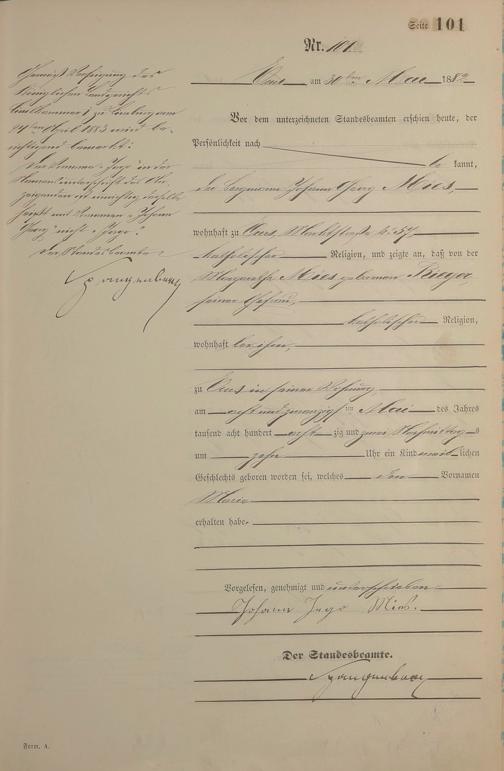 Seite 101
Nr. 101
Ems am 30ten Mai 1882
Vor dem unterzeichneten Standesbeamten erschien heute, der
Persönlichkeit nach
be kannt,
der Bergmann Johann Georg Mies,
wohnhaft zu Ems, Marktstraße № 57,
katholischer Religion, und zeigte an, daß von der
Margaretha Mies geborenen
seiner Ehefrau,
katholischer Religion,
wohnhaft bei ihm,
zu Ems in seiner Wohnung,
am acht und zwanzigsten Mai des Jahres
tausend acht hundert acht zig und zwei Nachmittags
um zehn Uhr ein Kind weib lichen
Geschlechts geboren worden sei, welches den Vornamen
Maria
erhalten habe.
Vorgelesen, genehmigt und unterschrieben
Johann Mies.
Der Standesbeamte.
Spangenberg
Gemäß Verfügung des
Königlichen Landgerichts
Civilkammer I zu Limburg vom
April 1883 wird be-
richtigend bemerkt:
Der Namen in der
Namensunterschrift des An-
zeigenden ist unrichtig, derselbe
heißt mit Vornamen „Johann
Georg" nicht
Der Standesbeamte:
Spangenberg
Form. A.